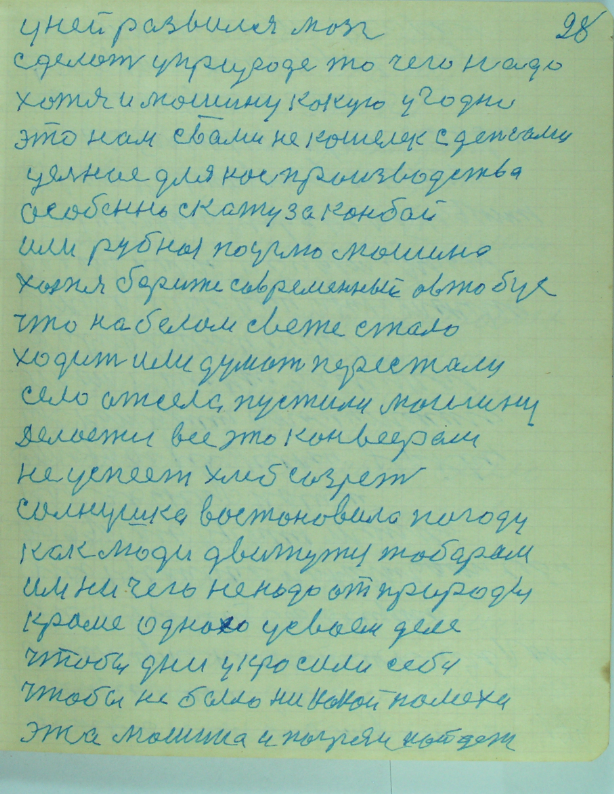 у ней развился мозг 28
сделат у природе то чего надо
хотя и машину какую угодни
это нам с вами не кошелек с деньгами
уемное для нос производства
особенно скажу за конбай
или рубная машина
хотя берите современный автобус
что на белом свете стало
ходит или думат перестали
село от села, пустили машину
делаети все это конвеерам
не успеет хлеб созрет
солнушка востоновила погоду
как люди движуту тобарам
им ни чего ненадо от природы
кроме одного усваем деле
чтобы дни украсили себя
чтобы не было никакой помеха
эта машина и найдет